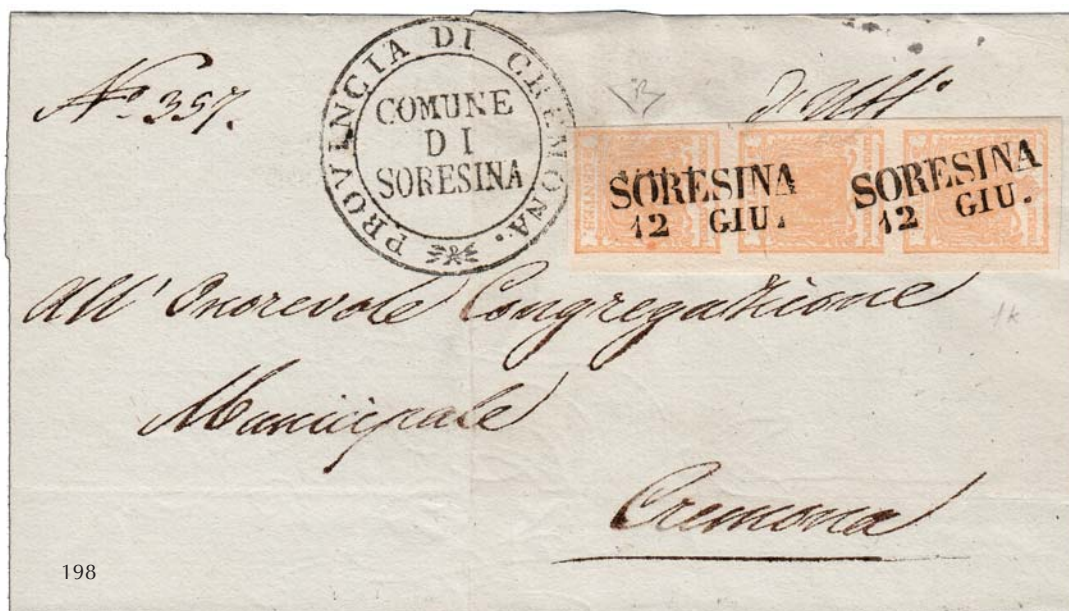 N.º 357.
PROVINCIA DI CREMONA.
COMUNE
DI
SORESINA
d'Uff.º
SORESINA
12 GIU.
SORESINA
12 GIU.
All' Onorevole Congregazione
Municipale
Cremona
1k
198